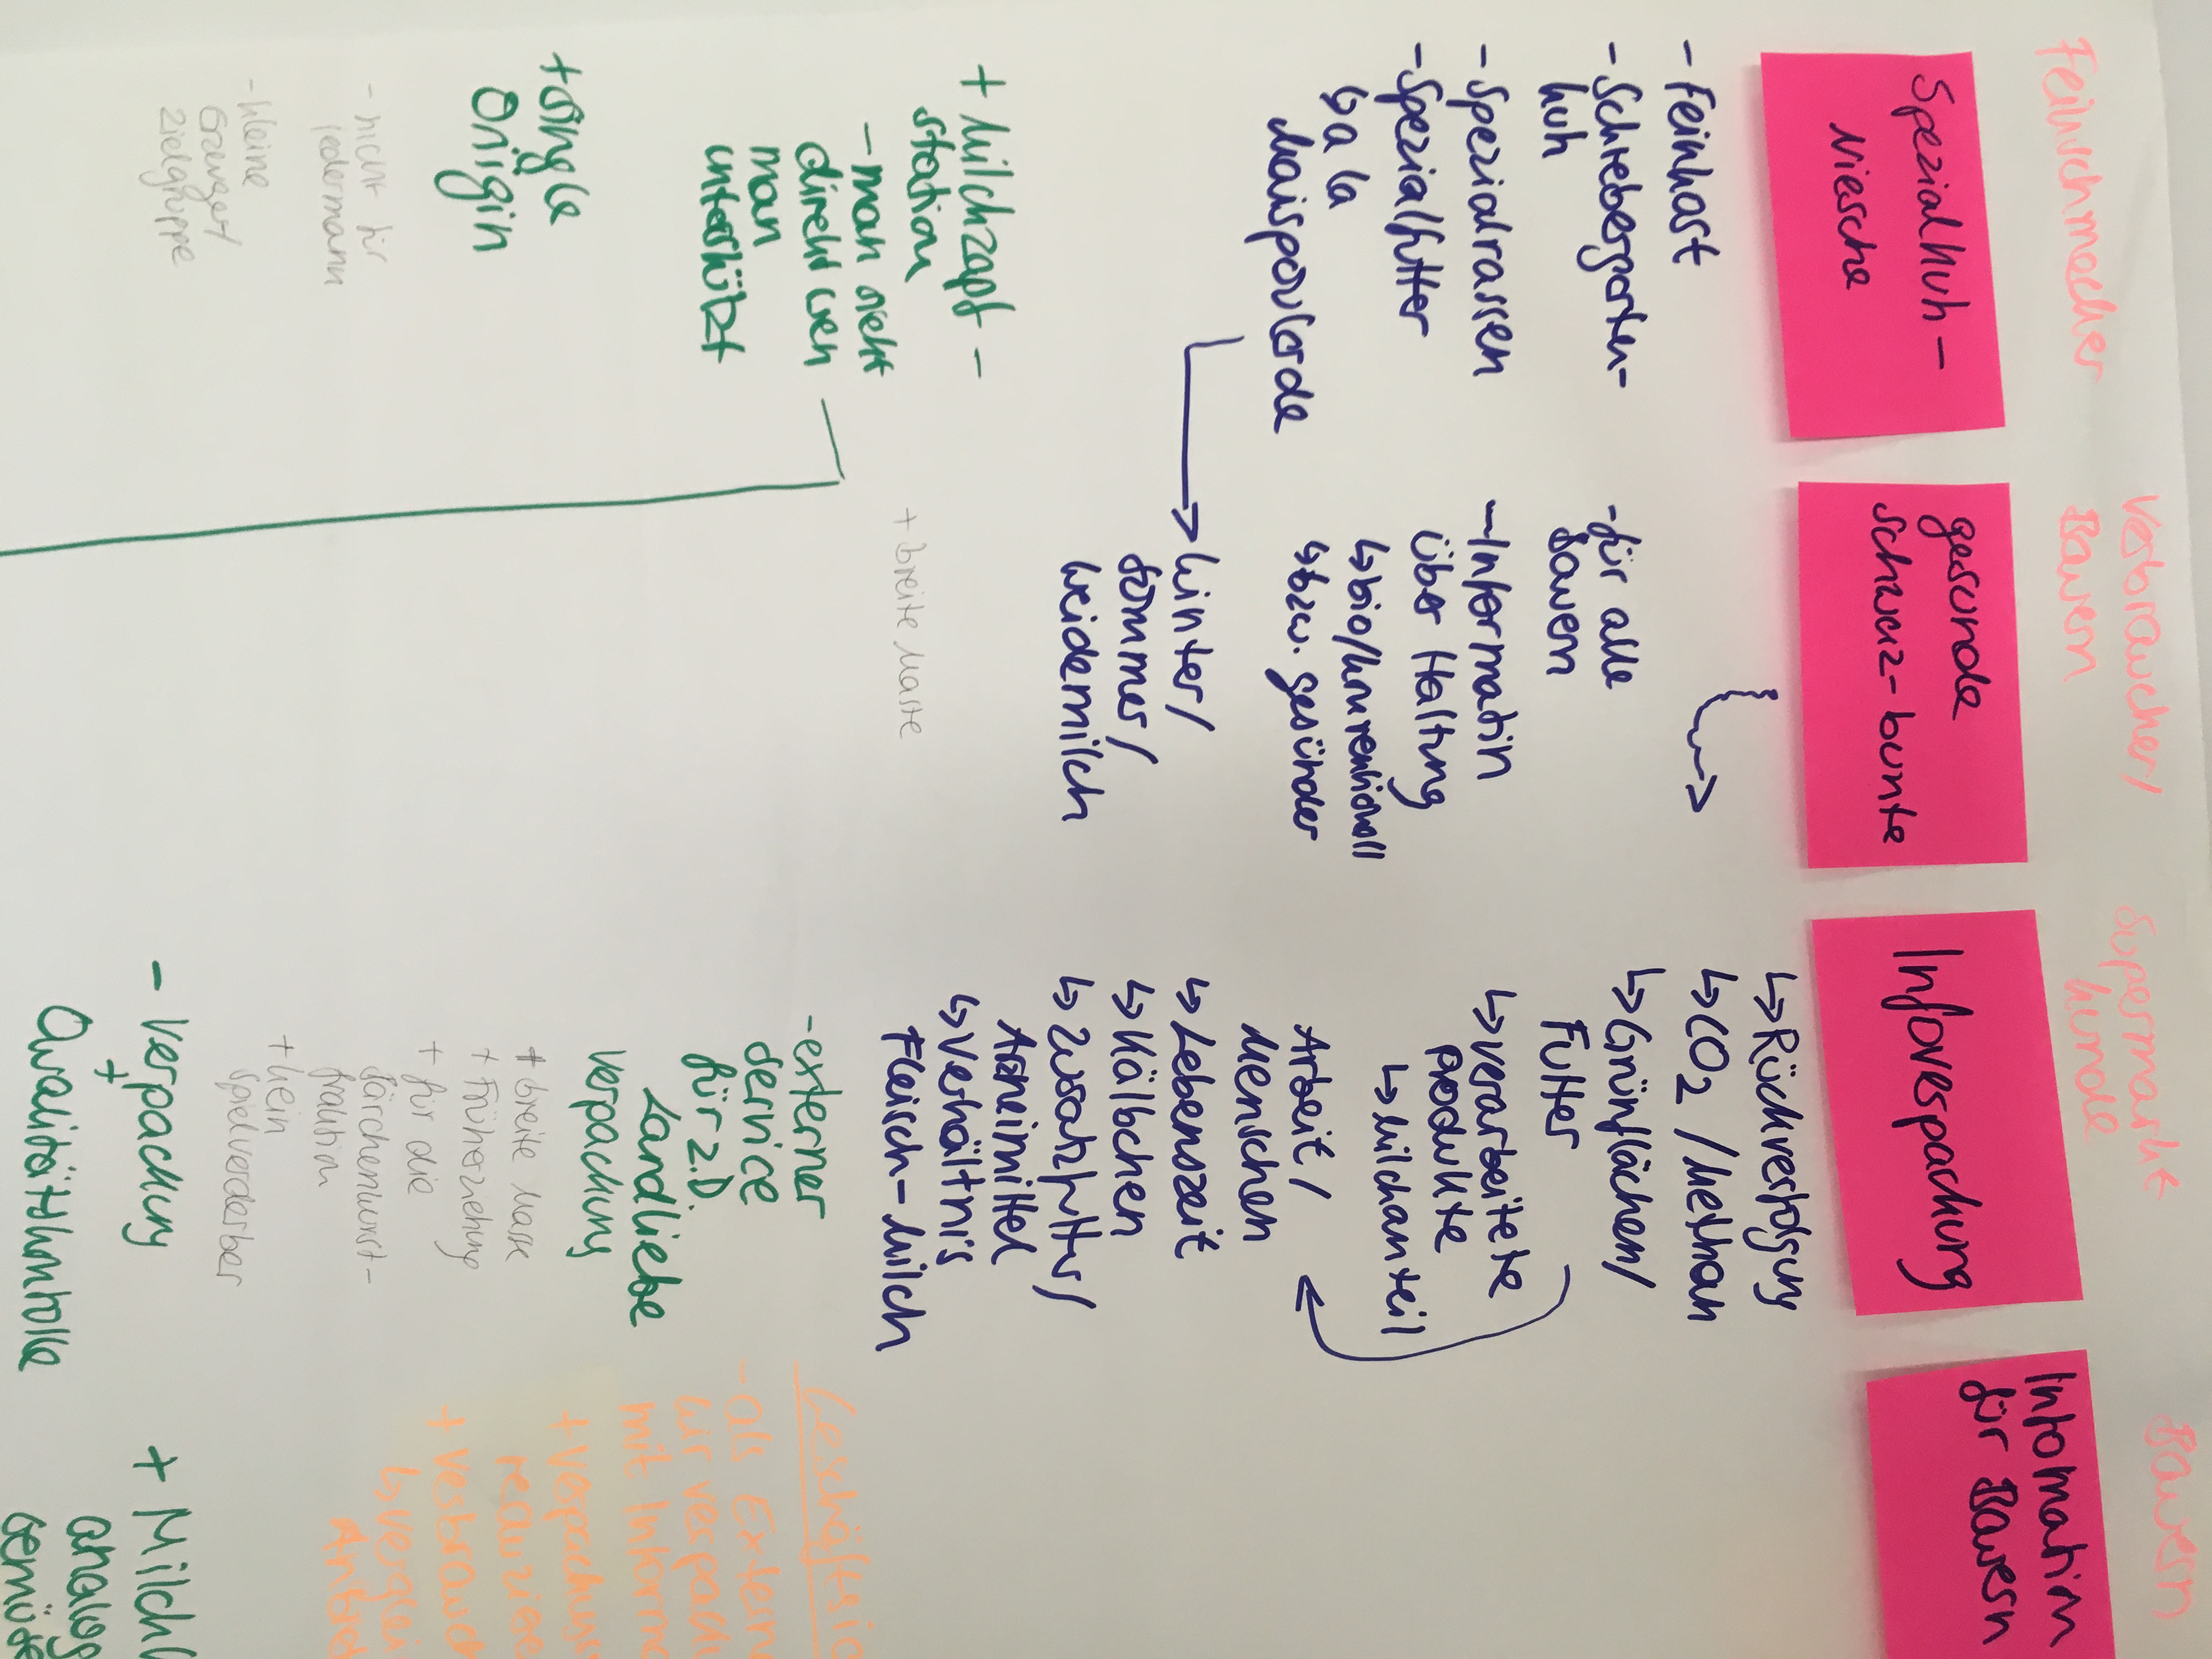 Feinschmecker
Spezialkuh-
Niesche
- Feinkost
- Schrebergarten-
kuh
- Spezialrassen
- Spezialfutter
↳ a la
Maispoularde
+ Milchzapf-
station
- man sieht
direkt wen
man
unterstützt
+ Single
Origin
- nicht für
jedermann
- kleine
Erzeuger/
Zielgruppe
Verbraucher/
Bauern
gesunde
schwarz-bunte
- für alle
Bauern
- Information
über Haltung
↳ bio/konventionell
↳ bzw. gesünder
Winter/
Sommer/
Weidemilch
+ breite Masse
Supermarkt
kunde
Infoverpackung
↳ Rückverfolgung
↳ CO2 / Methan
↳ Grünflächen/
Futter
↳ verarbeitete
Produkte
↳ Milchanteil
Arbeit/
Menschen
↳ Lebenszeit
↳ Kälbchen
↳ Zusatzfutter/
Arzneimittel
↳ Verhältnis
Fleisch-Milch
- externer
Service
für z.B.
Landliebe
Verpackung
+ breite Masse
+ Früherziehung
+ für die
Bärchenwurst-
fraktion
+ kein
Spielverderber
- Verpackung
+
Qualitätskontrolle
Bauern
Information
für Bauern
- als Extern
wir verpack
mit Inform
+ Verpackung
+ Verbrauch
+ Milch
analog
Gemüse